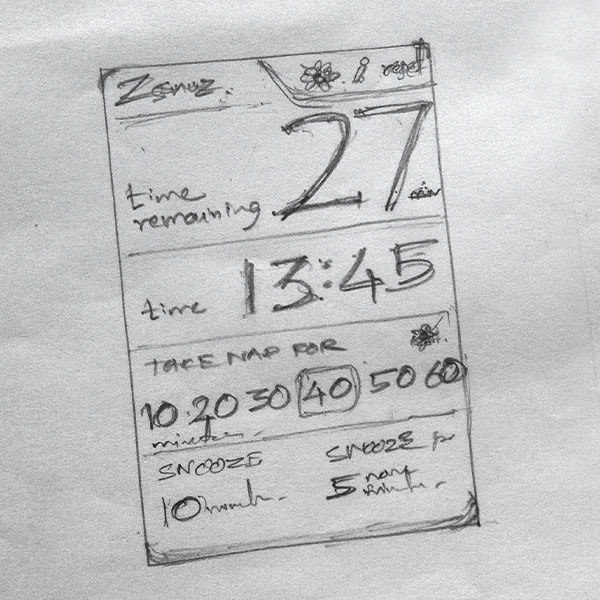 Zsnuz.
i reset
27 min
time
remaining
time 13:45
TAKE NAP FOR
10 20 30 40 50 60
minutes
SNOOZE
10
SNOOZE
5